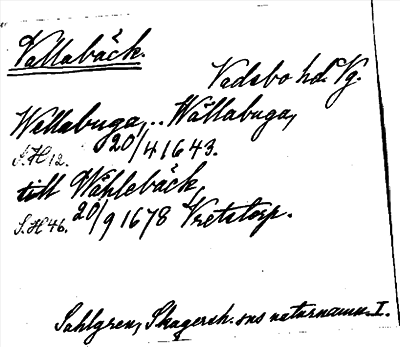 Vallabäck.
Vadsbo hd. Vg.
Wallabuga, .. Wällabuga,
S.H 12. 20/4 1643.
till Wåhlebäck,
S.H 46. 20/9 1678 Vretstorp.
Sahlgren, Skagersh. sns naturnamn. I.